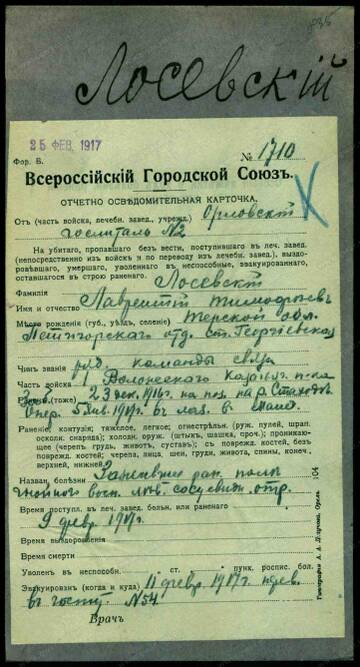 Лосевскій
25 ФЕВ. 1917
Фор. В.
№ 1710
Всероссійскій Городской Союзъ.
ОТЧЕТНО ОСВѢДОМИТЕЛЬНАЯ КАРТОЧКА.
Отъ (часть войска, лечебн. завед., учрежд.) Орловскій
госпиталь №2
На убитаго, пропавшаго безъ вести, поступившаго въ леч. завед.
(непосредственно изъ войскъ и по переводу изъ лечебн. завед.), выздо-
ровѣвшаго, умершаго, уволеннаго въ неспособные, эвакуированнаго,
оставшагося въ строю раненаго
Фамилія Лосевскій
Имя и отчество Лаврентій Тимофеев
Мѣсто рожденія (губ., уѣздъ, селеніе) Терской обл.
Пятигорского отд. ст. Георгіевская
Чинъ званія ряд. команды связи
Часть войска Волгскаго
(тоже) 23 дек. 1916г. на поз. на р.
5 янв. 1917г. въ лаз. в
Раненіе; контузія; тяжелое, легкое; огнестрѣльн. (руж. пулей, шрап.
осколк. снаряда); холодн. оруж. (штыкъ, шашка, проч.); проникаю-
щее (черепъ, грудь, животъ, суставъ); съ поврежд. костей, безъ
поврежд. костей; черепа, лица, шеи, груди, живота, спины, конеч.,
верхней, нижней.
Назван. болѣзни ран.
гнойного восп.
Время поступл. въ леч. завед. больн. или раненаго
9 февр. 1917г.
Время выздоровленія
Время смерти
Уволенъ въ неспособн. ст. пунктъ роспис. бол.
Эвакуированъ (когда и куда) 11 февр. 1917г.
въ госп. №54
Врачъ